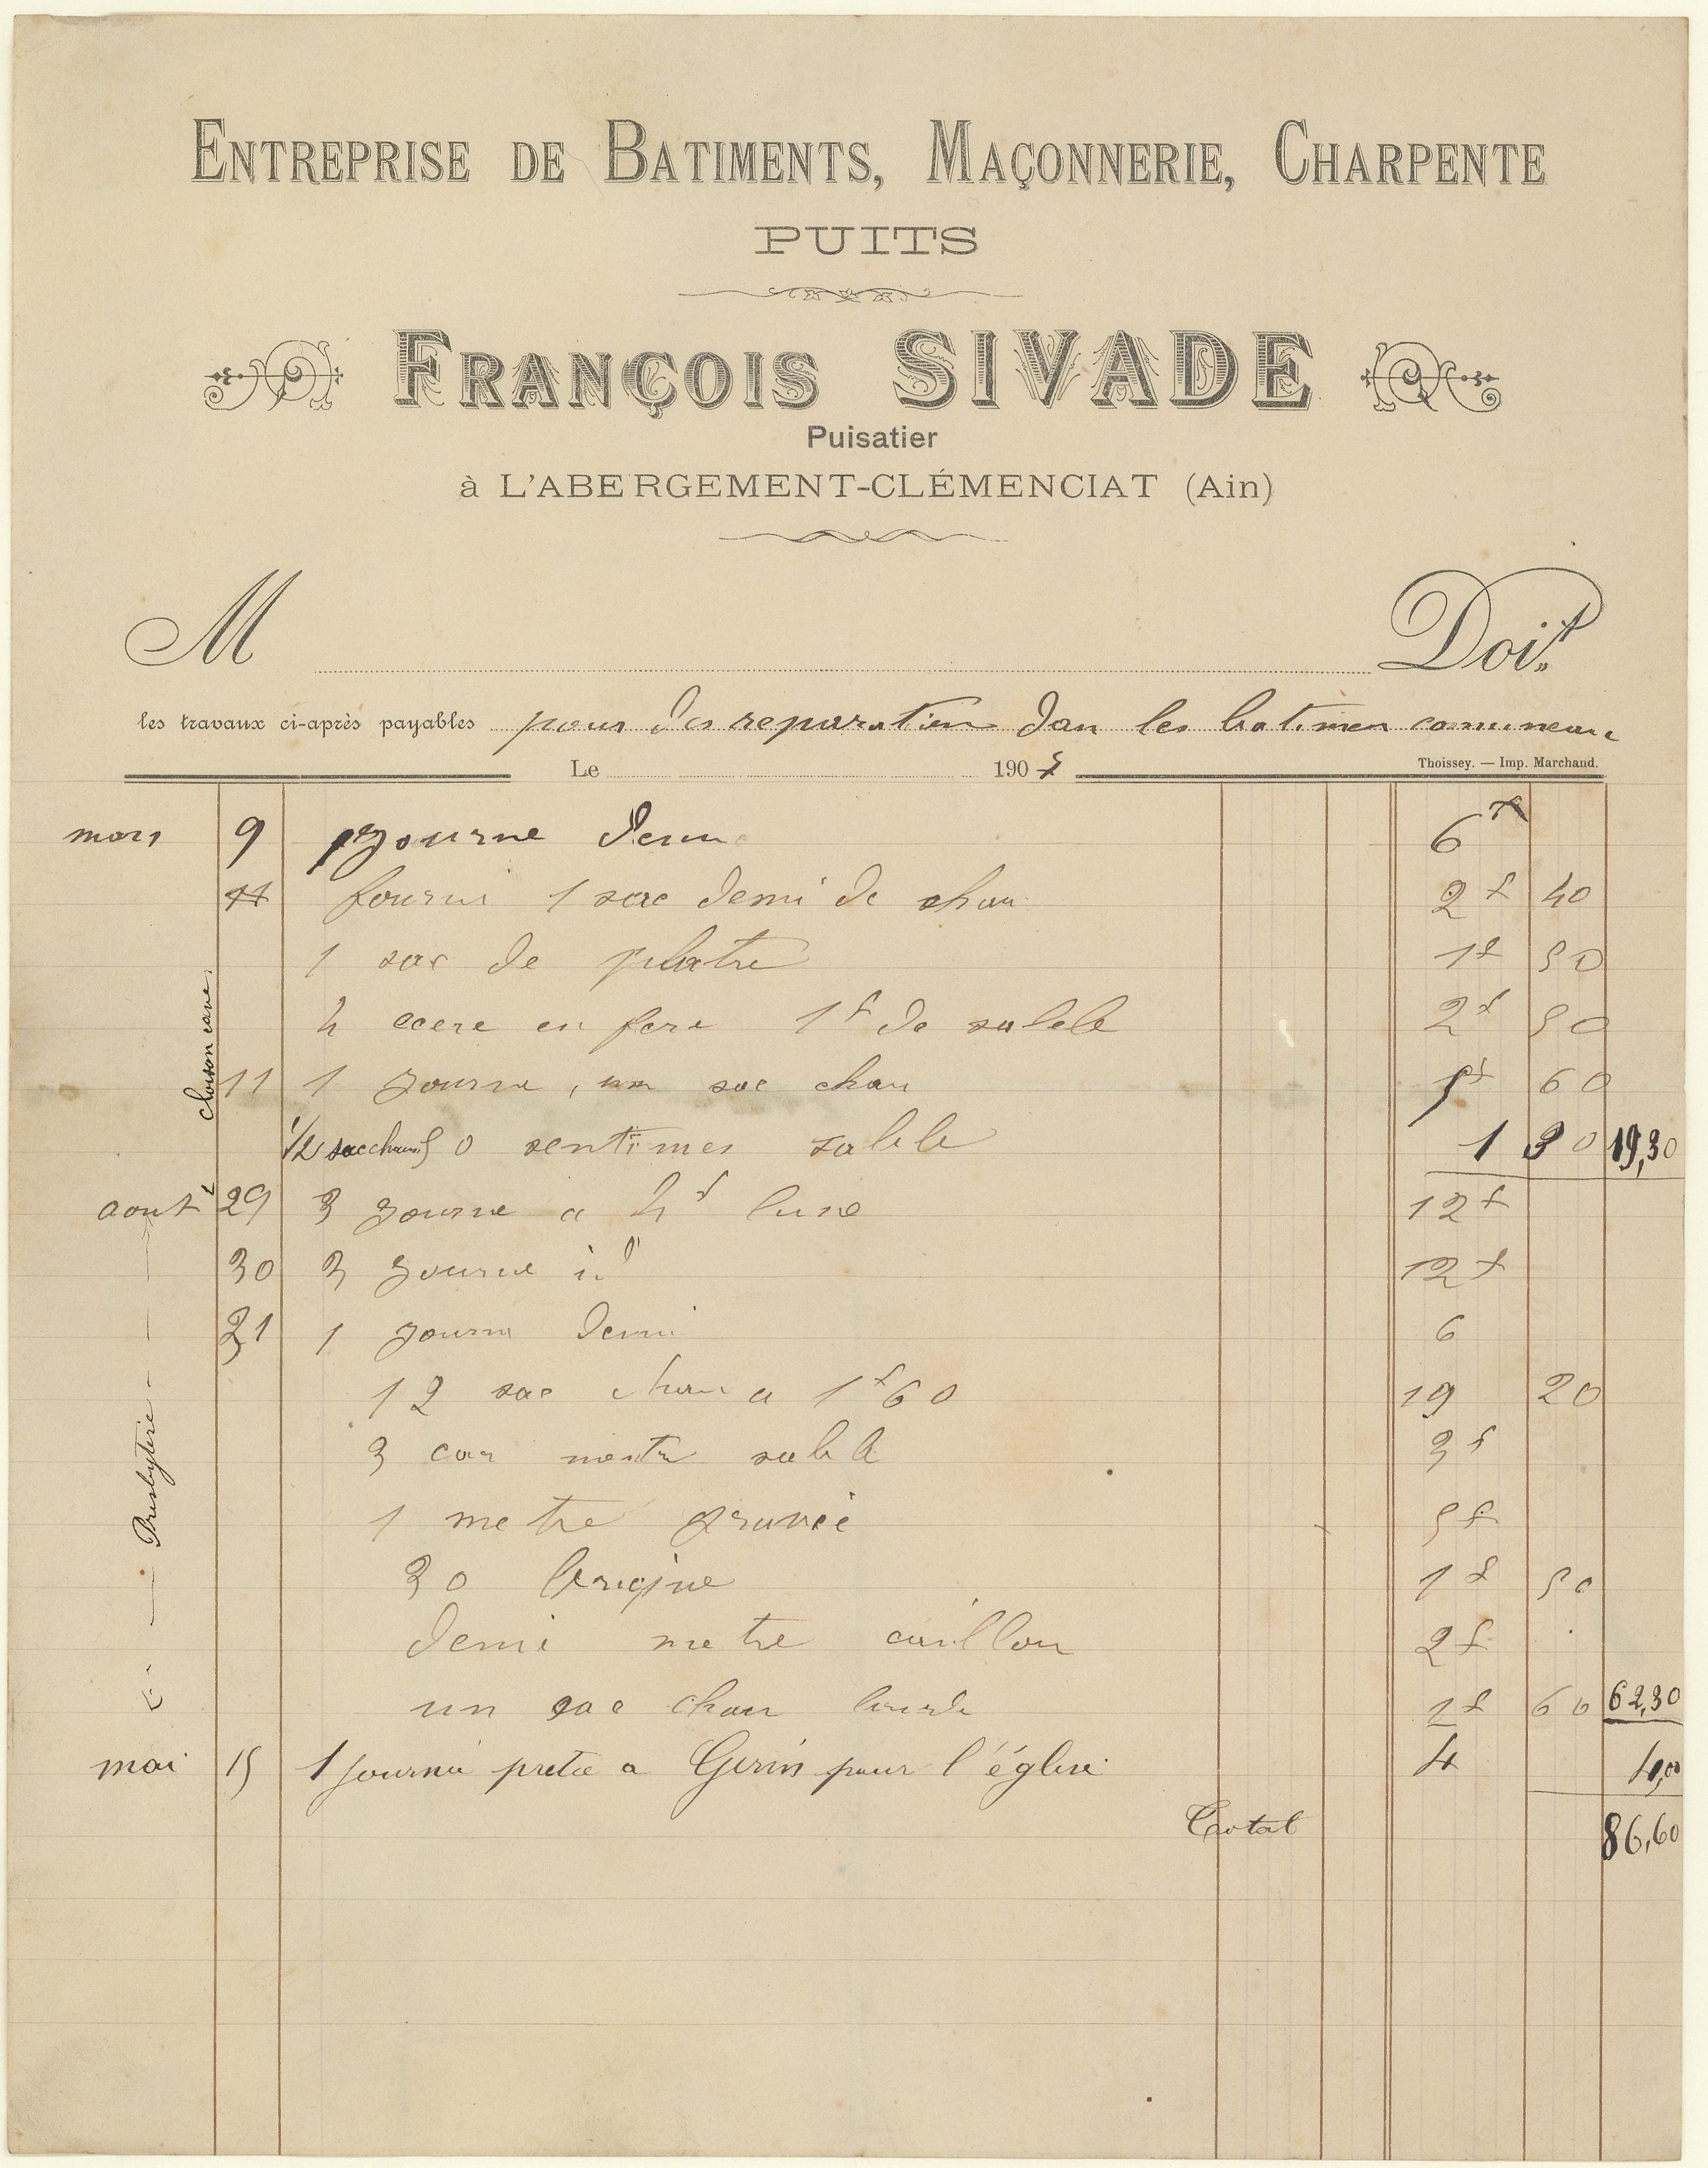 ENTREPRISE DE BATIMENTS, MAÇONNERIE, CHARPENTE
PUITS
FRANÇOIS SIVADE
Puisatier
à L'ABERGEMENT-CLÉMENCIAT (Ain)
M Doit
les travaux ci-après payables pour des reparation dan les batimen comuneaux
Le 190
Thoissey. — Imp. Marchand.
mars 9 journe demi 6 f
11 fourni 1 sac demi de chau 2 f 40
1 sac de platre 1 f 50
4 en fere 1 f de sable 2 f 50
cloison cave
11 1 journe, un sac chau 5 f 60
1/2 sac chaux 50 sentimes sable 1 30 19,30
aout 29 3 journe a 4 f lune 12 f
30 3 journe id 12 f
31 1 journe demi 6
12 sac chau a 1 f 60 19 20
3 car mestre sable 3 f
1 metre gravié 5 f
Presbytère
30 brique 1 f 50
demi metre caillou 2 f
un sac chau lourde 1 f 60 62,30
mai 15 1 journé pretée a Gerin pour l'église 4 4,00
Total 86,60